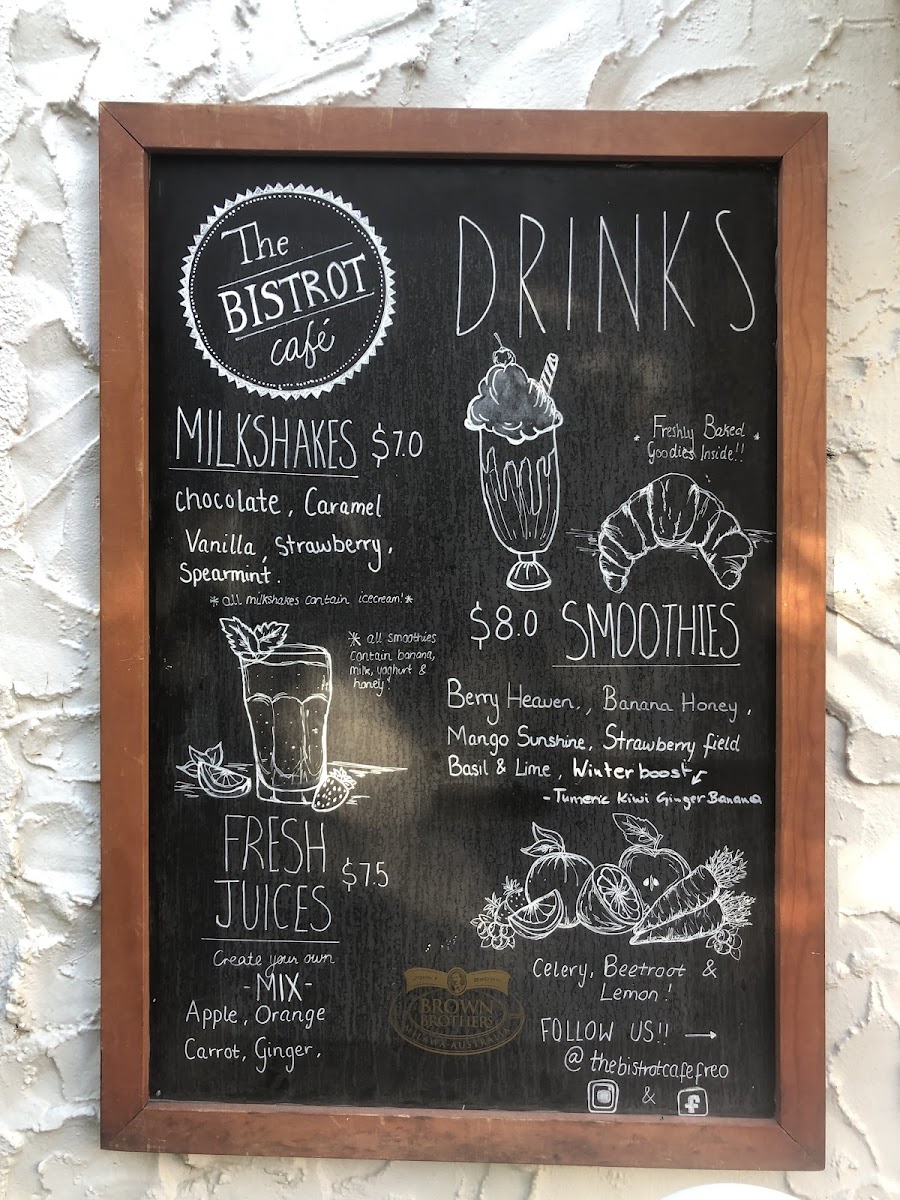 The
BISTROT
café
DRINKS
MILKSHAKES $7.0
chocolate, Caramel
Vanilla, Strawberry,
Spearmint.
*all milkshakes contain icecream!*
* Freshly Baked *
Goodies Inside!!
* all smoothies
contain banana,
milk, yoghurt &
honey
$8.0 SMOOTHIES
Berry Heaven., Banana Honey,
Mango Sunshine, Strawberry field
Basil & Lime, Winter boost
-Tumeric Kiwi Ginger Banana
FRESH
JUICES
$7.5
Create your own
-MIX-
Apple, Orange
Carrot, Ginger,
Celery, Beetroot &
Lemon!
FOLLOW US!! →
@thebistrotcafefreo
&
BROWN
BROTHERS